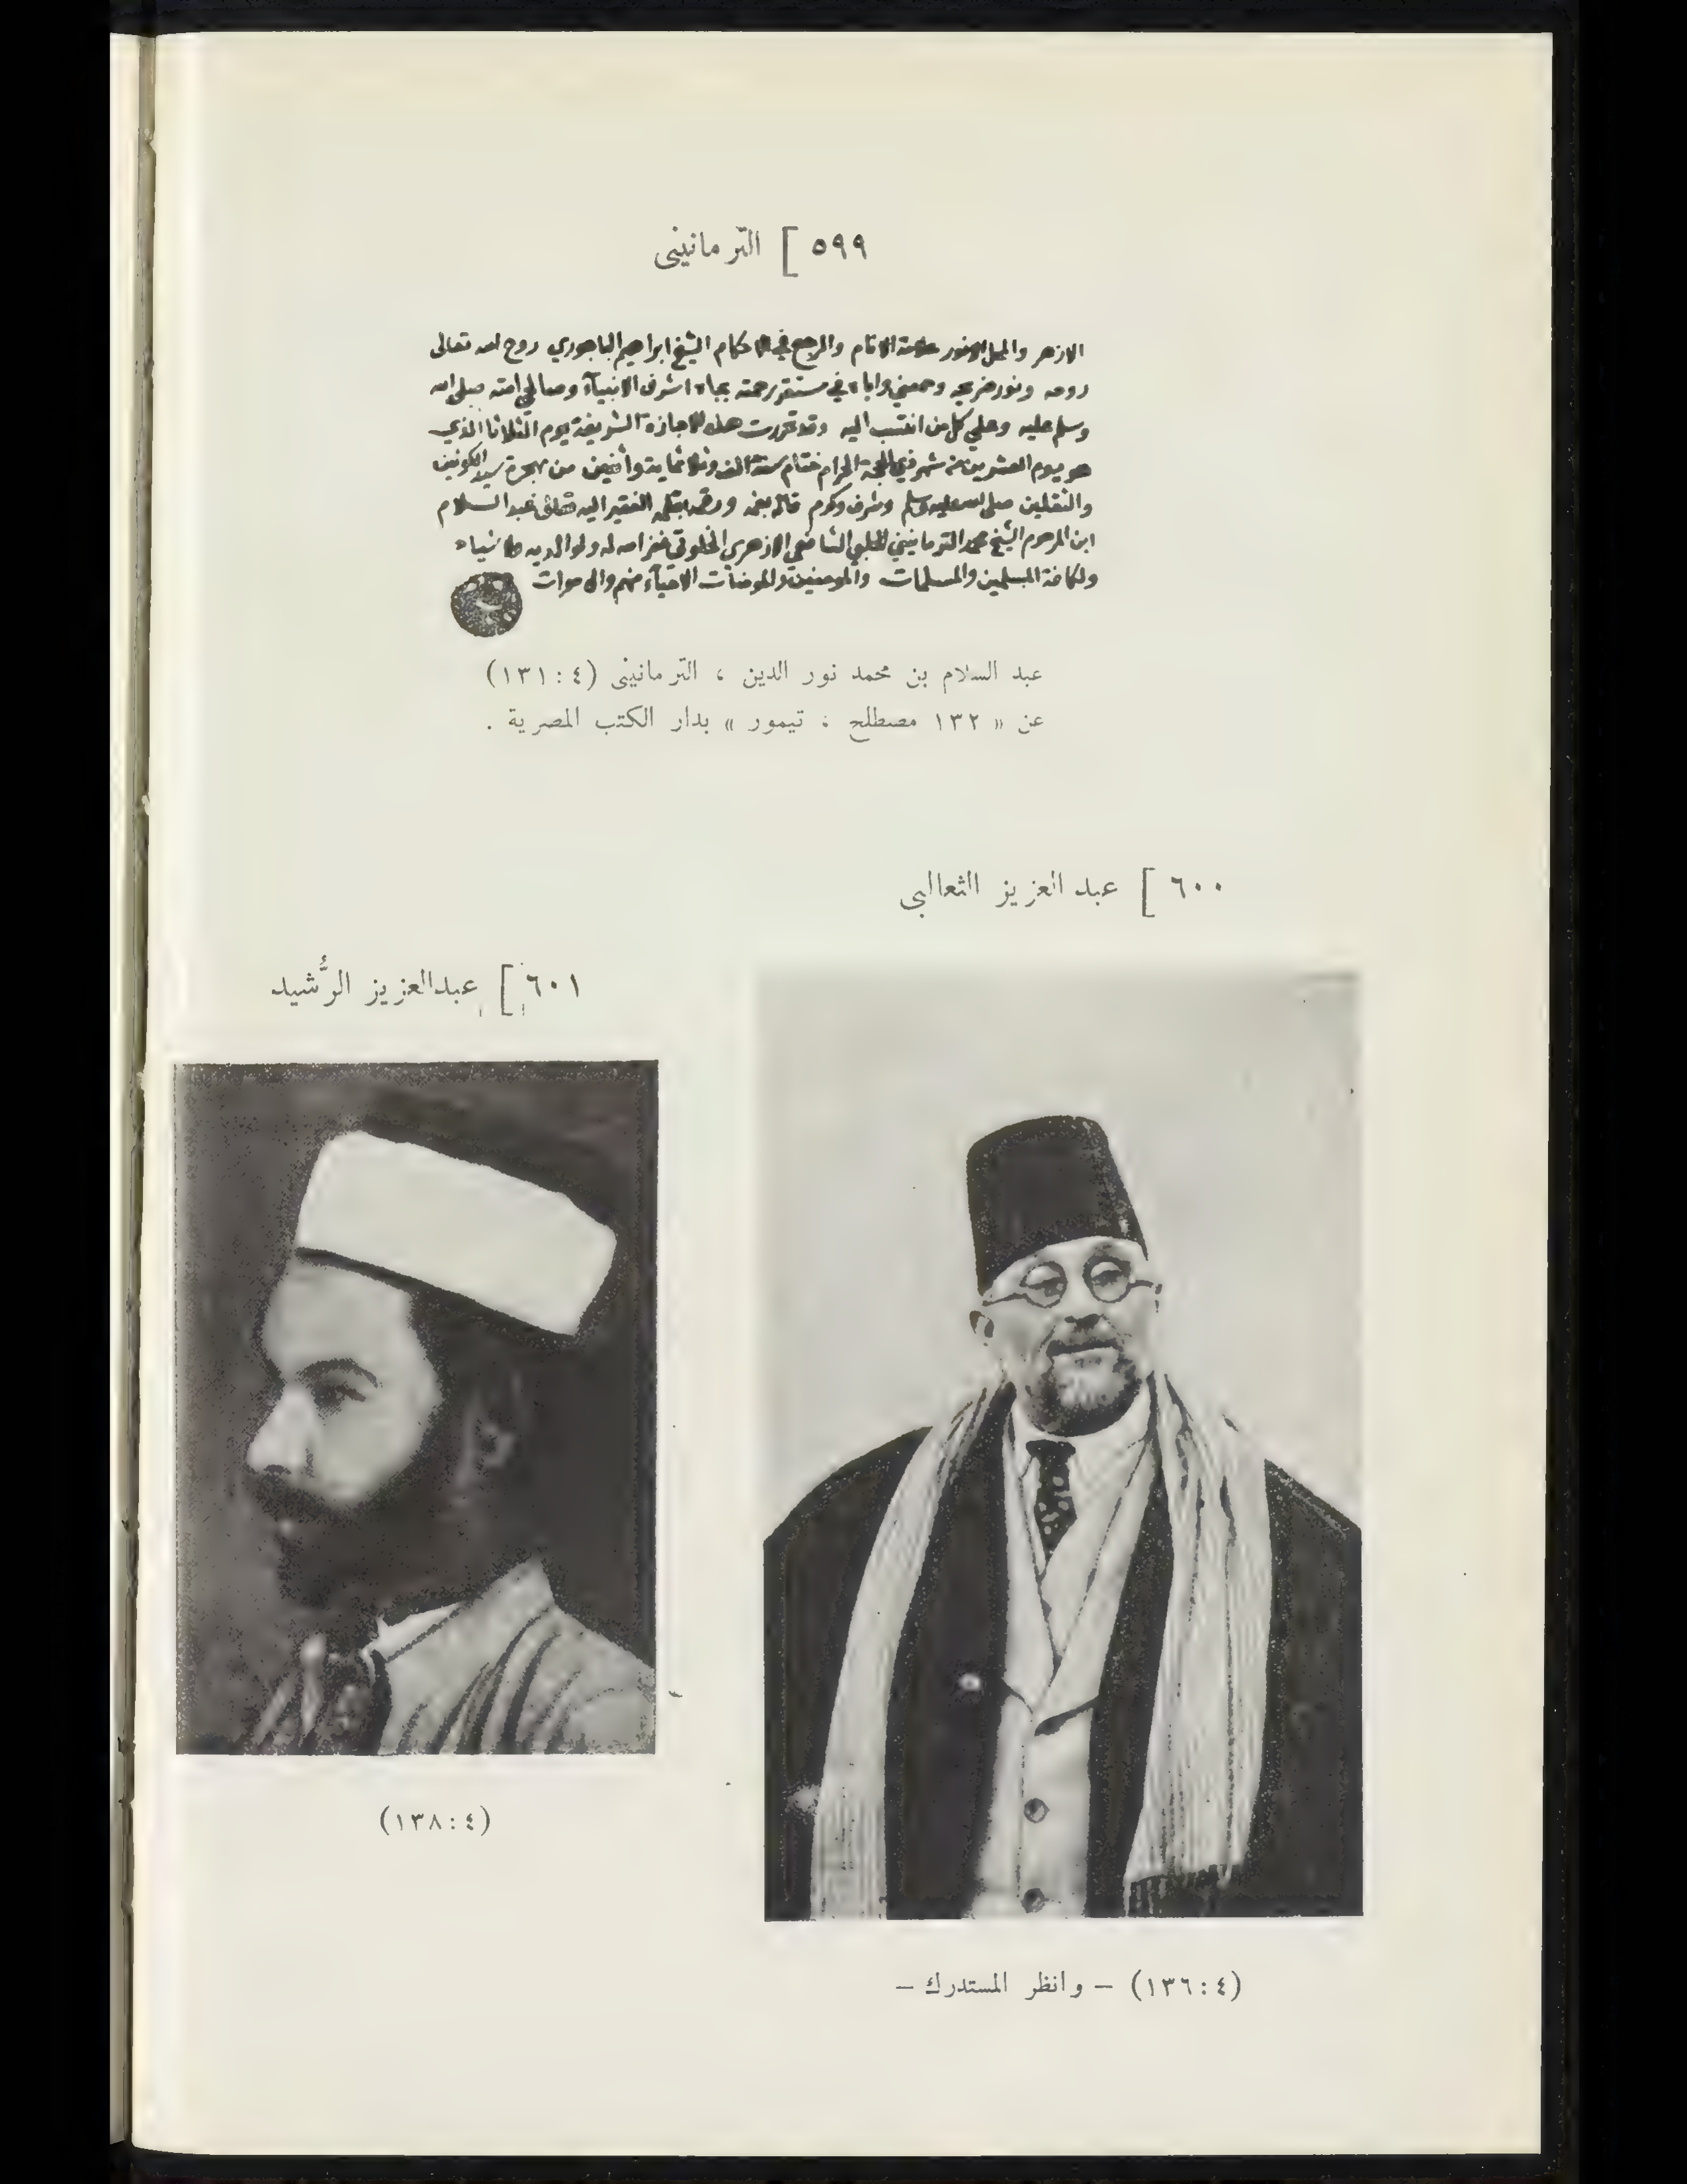 ٥٩٩ [ الترمانيني
الازهر والمحل الانور علامة الانام والمرجع في الاحكام الشيخ ابراهيم الباجوري روح الله تعالى
روحه ونور ضريحه وجمعني واياه في مستقر رحمته بجاه اشرف الانبياء وصالحي امته صلى الله
وسلم عليه وعلي كل من انتسب اليه وقد تحررت هذه الاجازة الشريفة يوم الثلاثا الذي
هو يوم العشرين من شهر ذي الحجة الحرام ختام سنة الف وثلاثماية وأثنين من هجرة سيد الكونين
والثقلين صلى الله عليه وسلم وشرف وكرم قاله بفمه ورقمه بقلمه الفقير اليه تعالى عبد السلام
ابن المرحوم الشيخ محمد الترمانيني الحلبي الشافعي الازهري الخلوتي غفر الله له ولوالديه
ولكافة المسلمين والمسلمات والمومنين والمومنات الاحياء منهم والاموات
عبد السلام بن محمد نور الدين ، الترمانيني (٤ : ١٣١)
عن « ١٣٢ مصطلح ، تيمور » بدار الكتب المصرية .
٦٠٠ [ عبد العزيز الثعالبي
٦٠١ [ عبدالعزيز الرُّشيد
(٤ : ١٣٨)
(٤ : ١٣٦) – وانظر المستدرك –